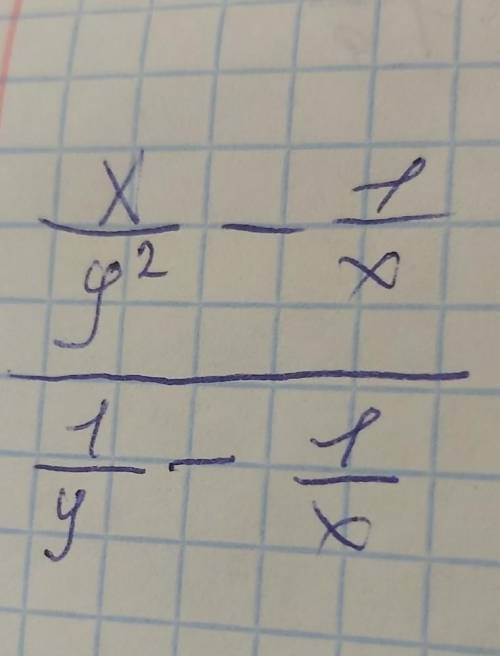 x/y² - 1/x
1/y - 1/x